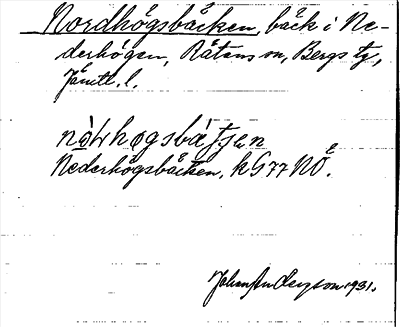 Nordhögsbäcken, bäck i Ne-
derhögen, Rätans sn, Bergs tg,
Jämtl. l.
Nederhögsbäcken, k G 77 NÖ.
Johan Anderson 1931.